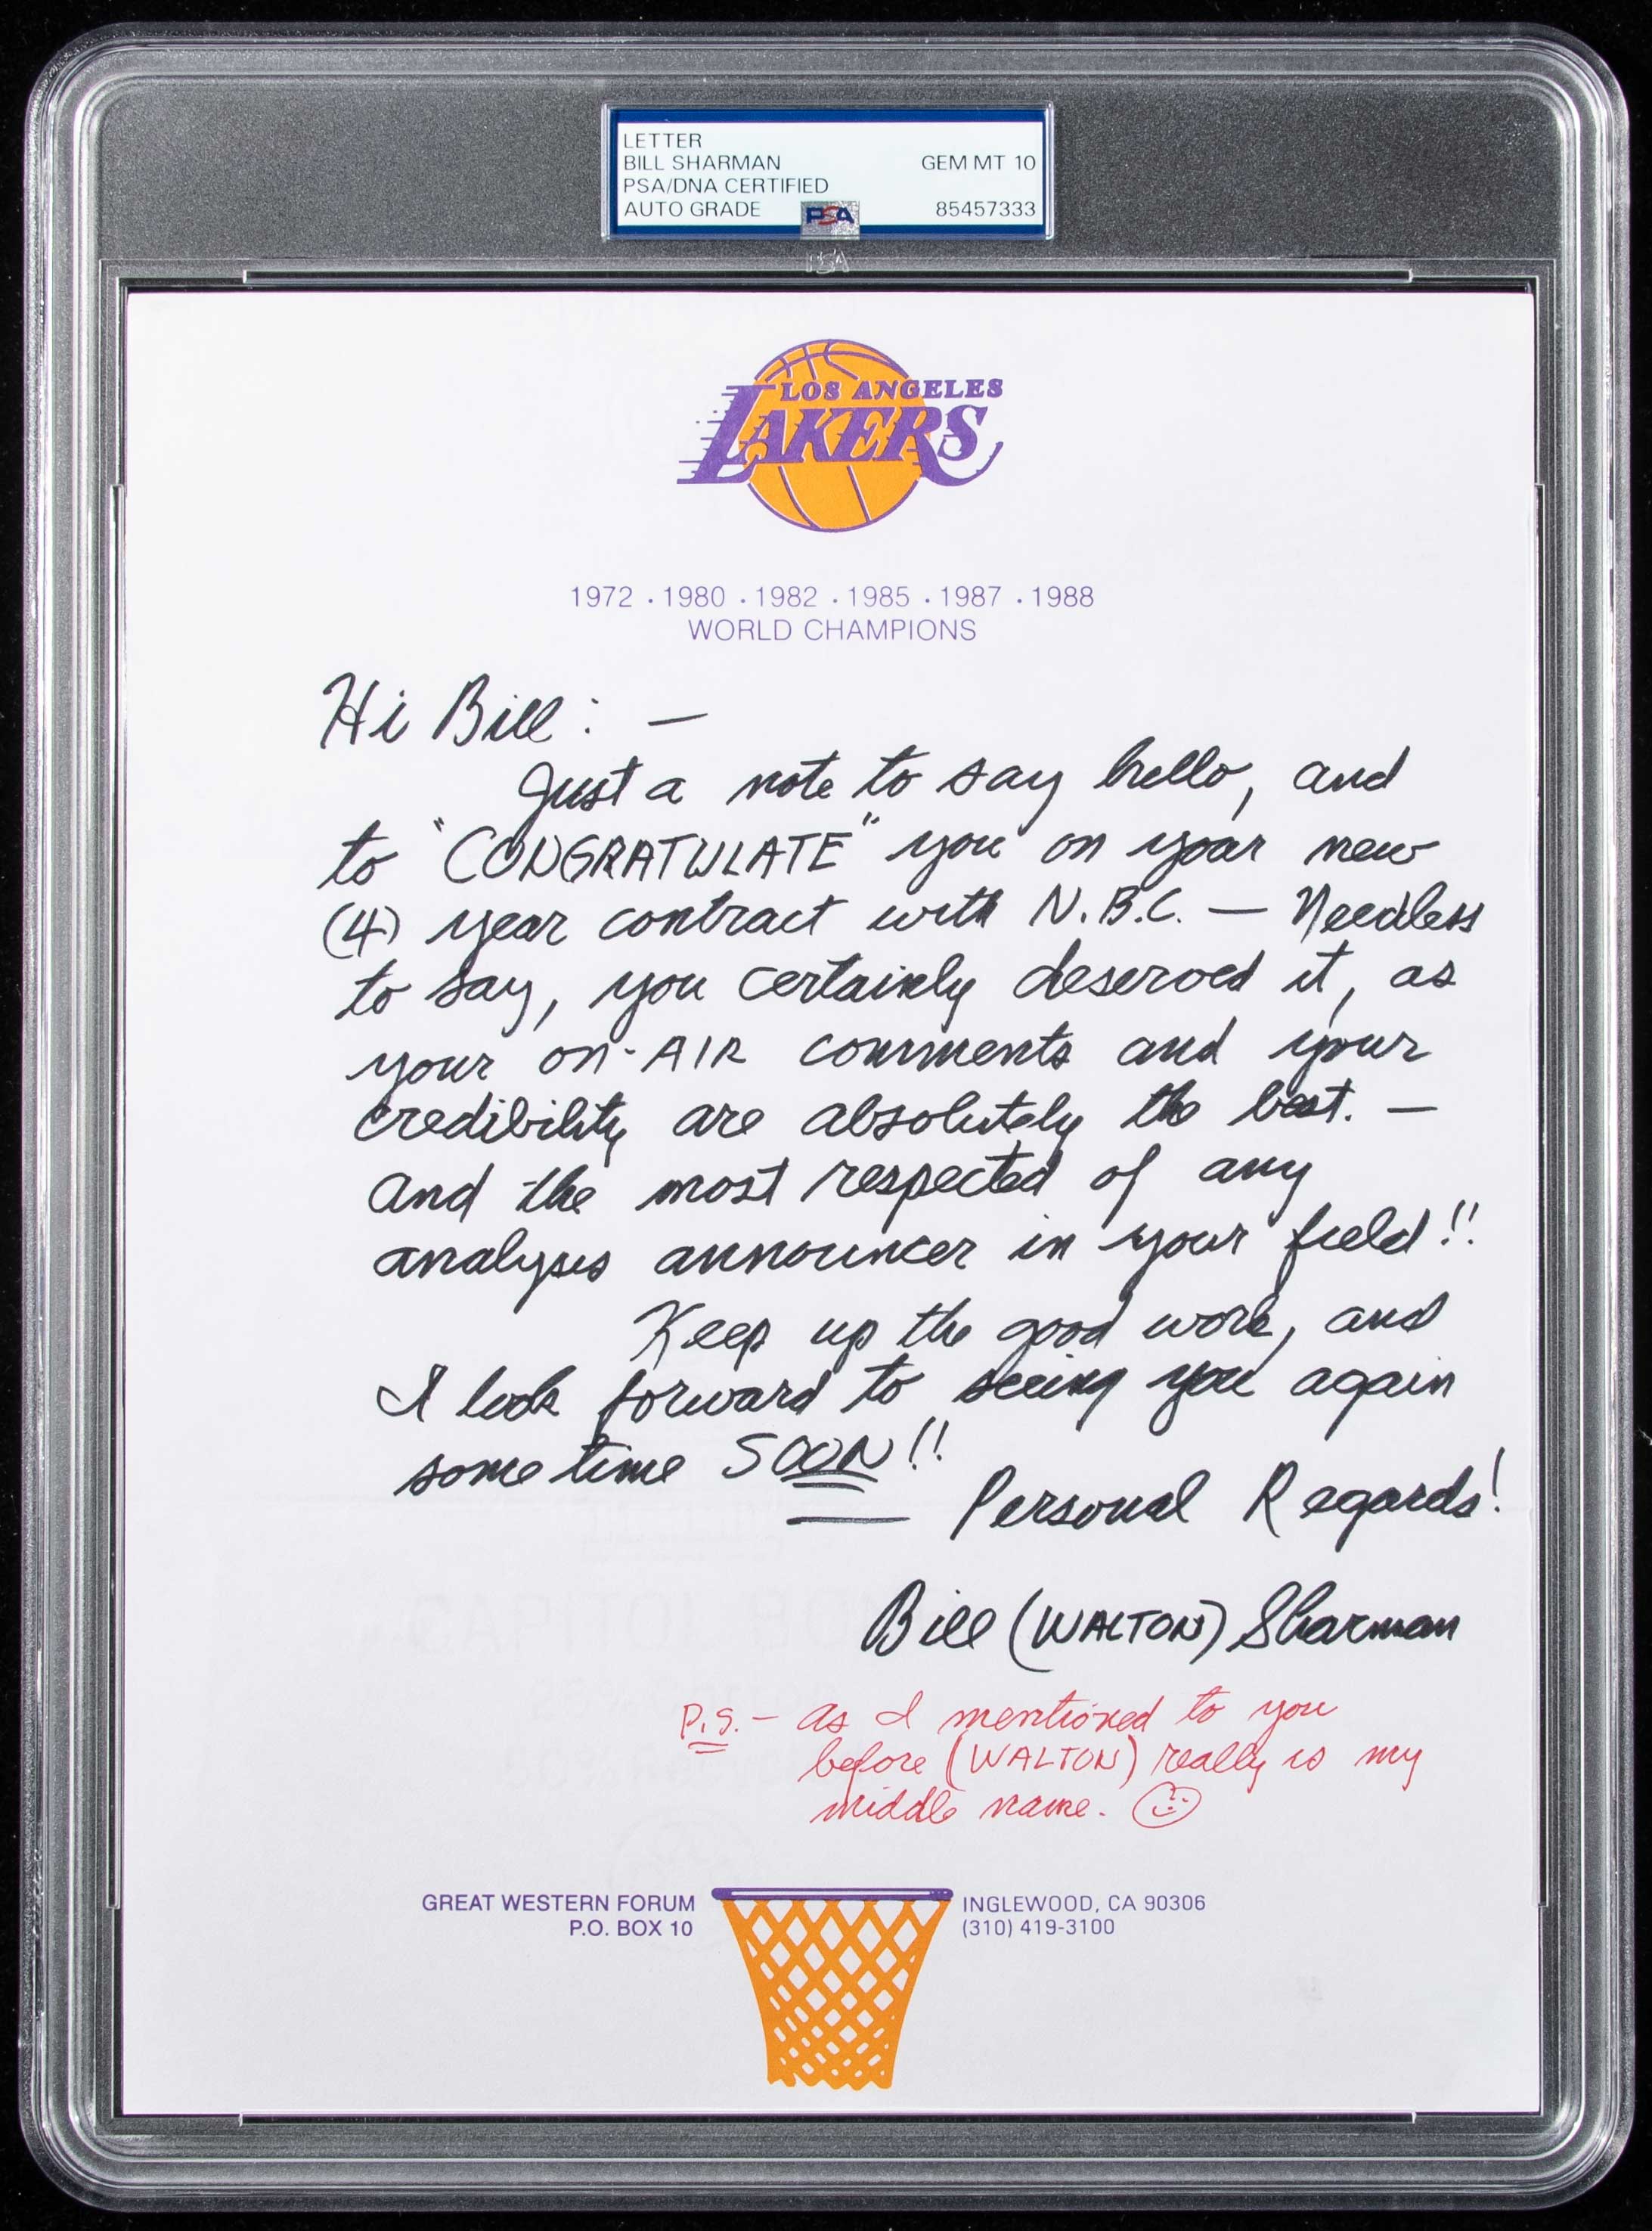 LETTER
BILL SHARMAN GEM MT 10
PSA/DNA CERTIFIED
AUTO GRADE PSA 85457333
PSA
LOS ANGELES
LAKERS
1972 · 1980 · 1982 · 1985 · 1987 · 1988
WORLD CHAMPIONS
Hi Bill: —
Just a note to say hello, and
to "CONGRATULATE" you on your new
(4) year contract with N.B.C. — Needless
to say, you certainly deserved it, as
your on-AIR comments and your
credibility are absolutely the best. —
and the most respected of any
analysis announcer in your field!!
Keep up the good work, and
I look forward to seeing you again
some time SOON!!
— Personal Regards!
Bill (WALTON) Sharman
P.S. — As I mentioned to you
before (WALTON) really is my
middle name. ☺
GREAT WESTERN FORUM INGLEWOOD, CA 90306
P.O. BOX 10 (310) 419-3100